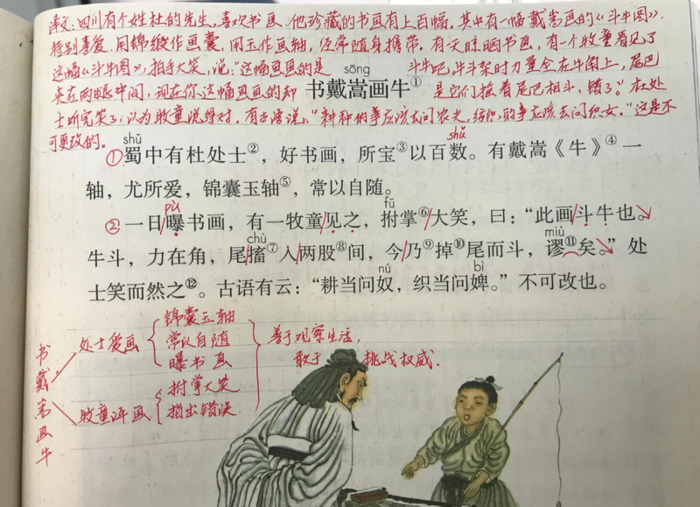 译文:四川有个姓杜的先生,喜欢书画。他珍藏的书画有上百幅,其中有一幅戴嵩画的《斗牛图》.
特别喜爱.用绵缎作画囊,用玉作画轴,经常随身携带。有天晾晒书画,有一个牧童看见了
这幅《斗牛图》,拍手大笑,说:"这幅画画的是 斗牛吧,牛斗架时力量全在牛角上,尾巴
sōng
夹在两腿中间,现在你这幅画画的却 书戴嵩画牛① 是它们摇着尾巴相斗,错了。"杜处
士听完笑了,认为牧童说得对,有古话说,"耕种的事应该去问农夫,纺织的事应该去问织女。"这是不
可更改的.
shǔ shù
①蜀中有杜处士②,好书画,所宝③以百数。有戴嵩《牛》④一
轴,尤所爱,锦囊玉轴⑤,常以自随。
pù fǔ
②一日/曝书画,有一牧童/见之,拊掌⑥/大笑,曰:"此画/斗牛也。
chù miù
牛斗,力在角,尾/搐⑦入/两股⑧间,今/乃⑨掉⑩尾而斗,谬⑪矣。"处
nú bì
士笑而然之⑫。古语有云:"耕当问奴,织当问婢。"不可改也。
书戴嵩画牛
处士爱画
锦囊玉轴
常以自随
曝书画
牧童评画
拊掌大笑
指出错误
善于观察生活,
敢于 挑战权威.